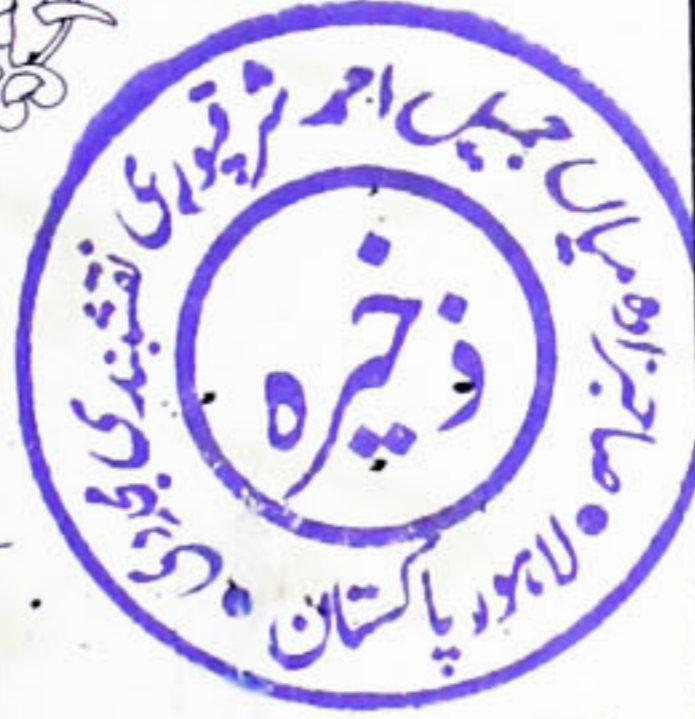 ذخیرہ
صاحبزادہ میاں جمیل احمد شرقپوری نقشبندی مجددی
لاہور پاکستان